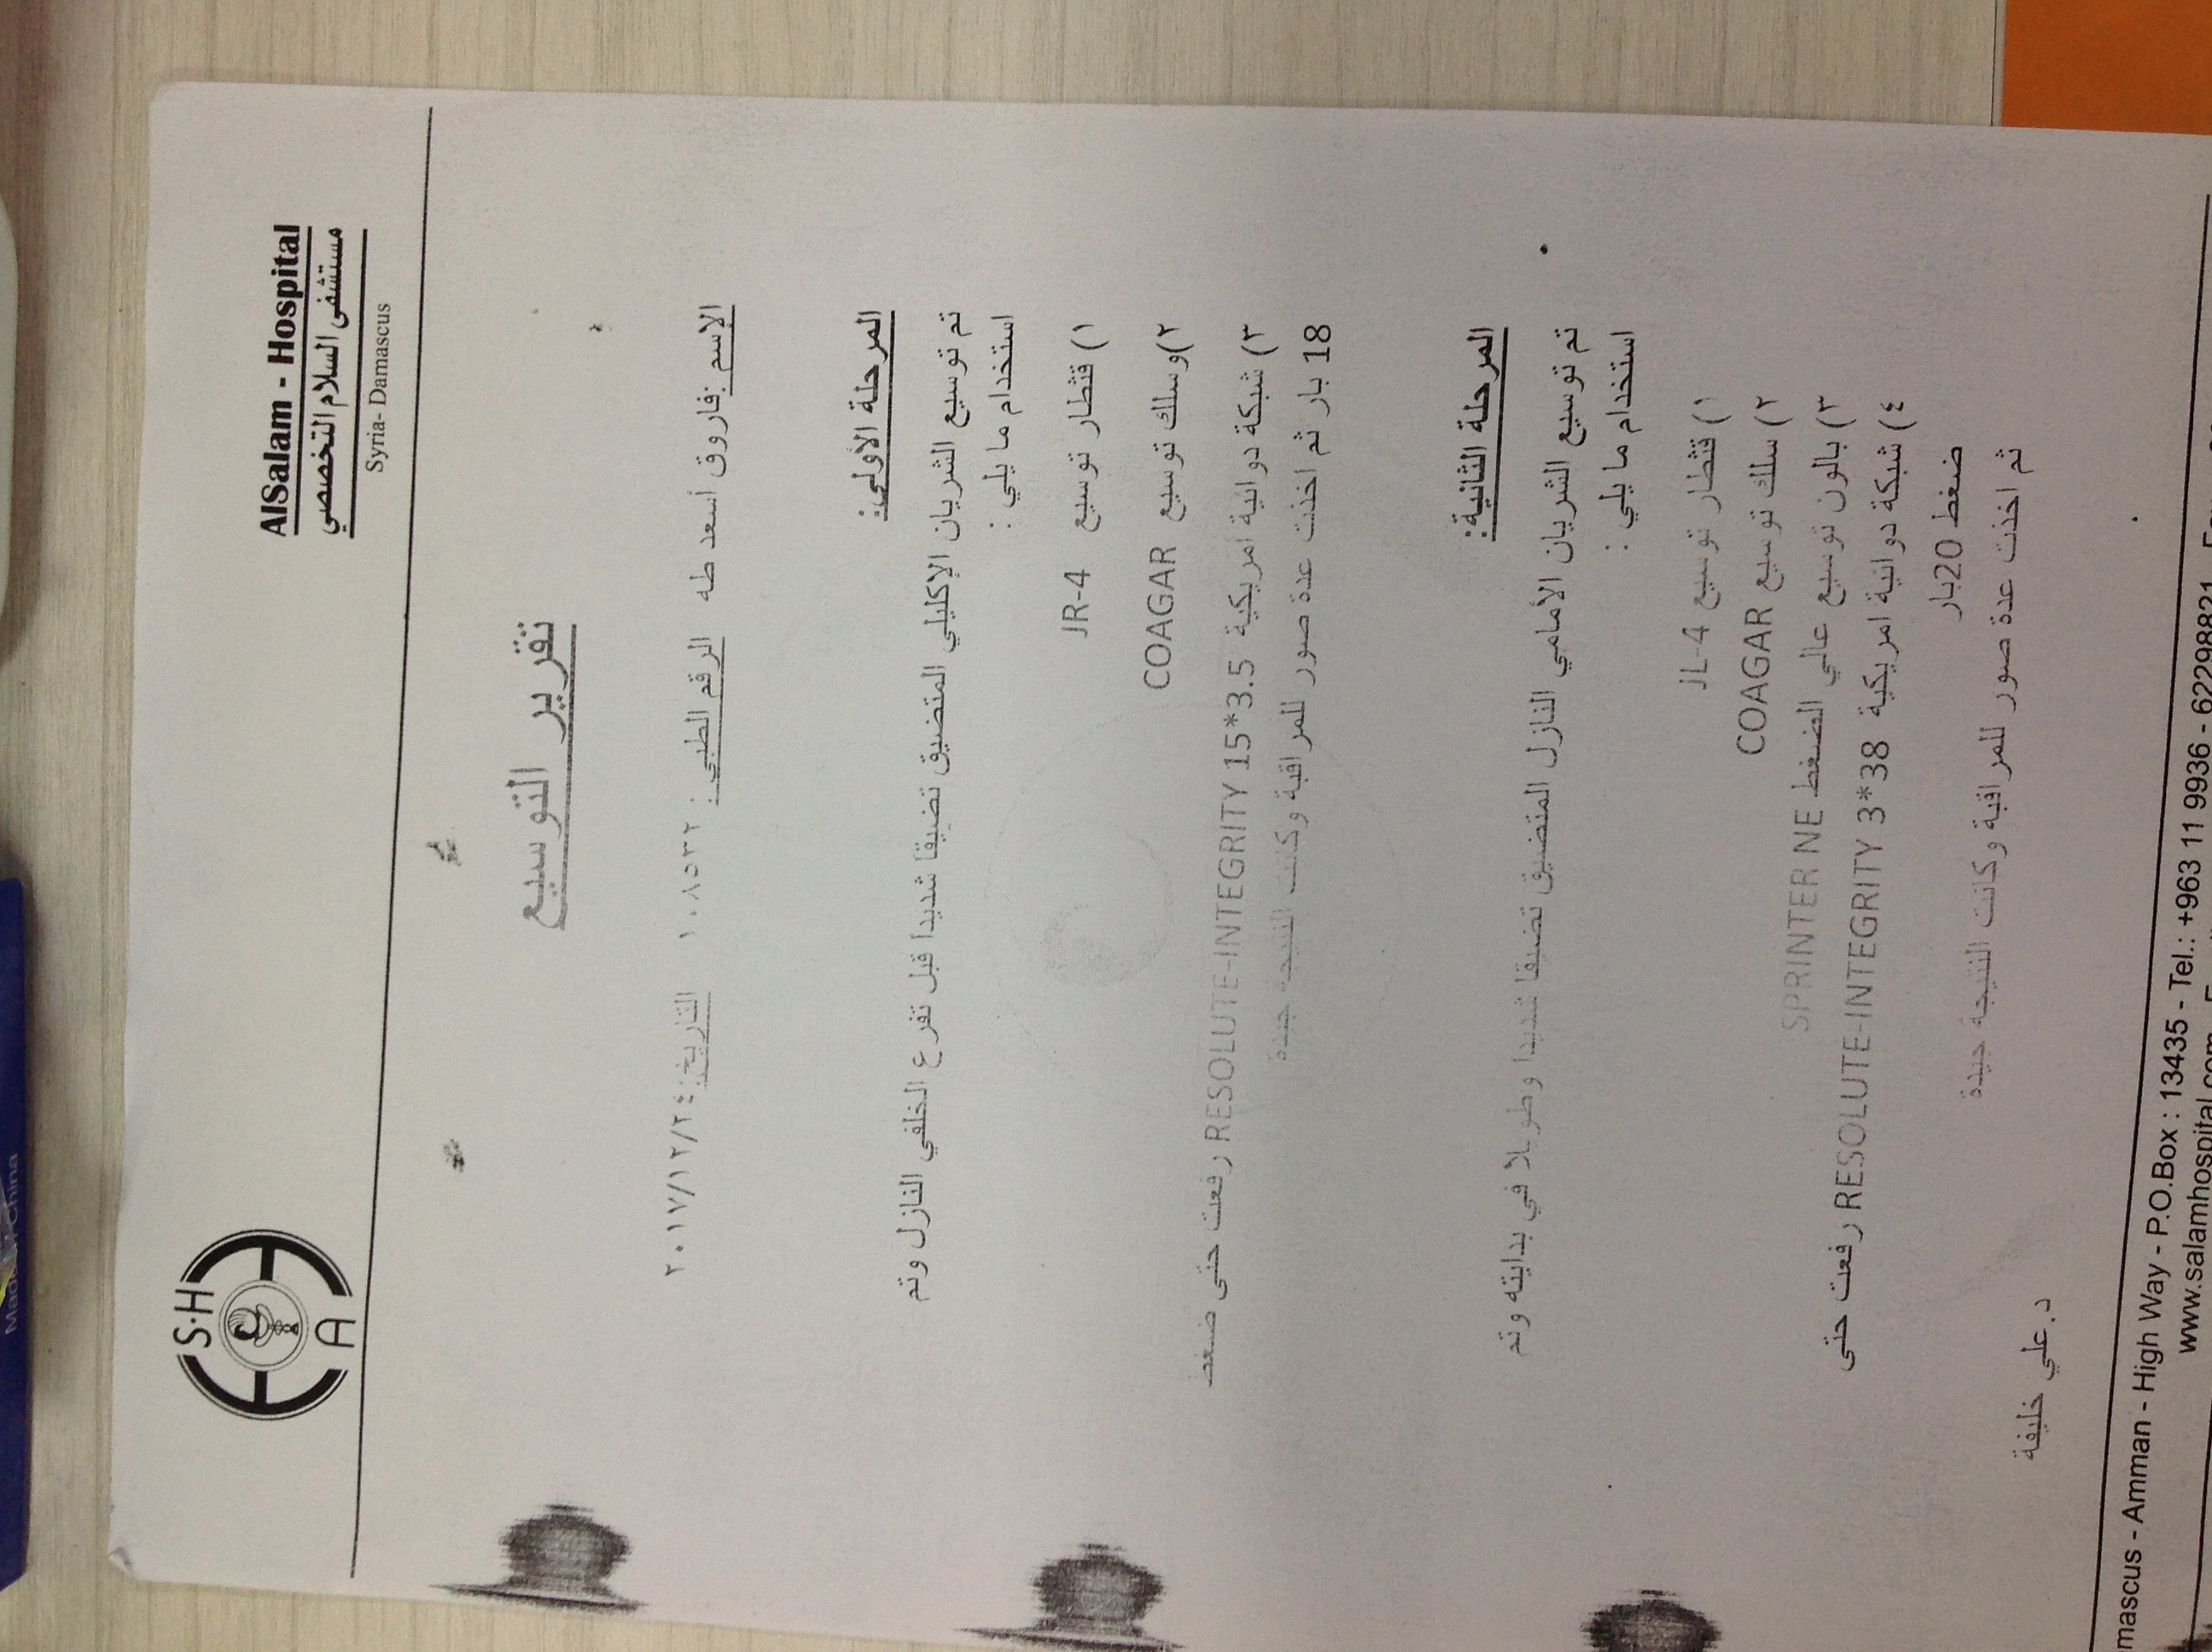 AlSalam - Hospital
مستشفى السلام التخصصي
Syria- Damascus
S.H
A
تقرير التوسيع
الإسم :فاروق أسعد طه الرقم الطبي: ١٠٨٥٣٢ التاريخ: ٢٠١٧/١٢/٢٤
المرحلة الأولى:
تم توسيع الشريان الإكليلي المتضيق تضيقا شديدا قبل تفرع الخلفي النازل وتم
استخدام ما يلي :
١) قثطار توسيع JR-4
٢)وسلك توسيع COAGAR
٣) شبكة دوائية امريكية RESOLUTE-INTEGRITY 15*3.5 رفعت حتى ضغط
18 بار ثم اخذت عدة صور للمراقبة وكانت النتيجة جيدة
المرحلة الثانية:
تم توسيع الشريان الأمامي النازل المتضيق تضيقا شديدا وطويلا في بدايته وتم
استخدام ما يلي :
١) قثطار توسيع JL-4
٢) سلك توسيع COAGAR
٣) بالون توسيع عالي الضغط SPRINTER NE
٤) شبكة دوائية امريكية RESOLUTE-INTEGRITY 3*38 رفعت حتى
ضغط 20بار
ثم اخذت عدة صور للمراقبة وكانت النتيجة جيدة
د.علي خليفة
mascus - Amman - High Way - P.O.Box : 13435 - Tel.: +963 11 9936 - 62298821
www.salamhospital.com
Made in China